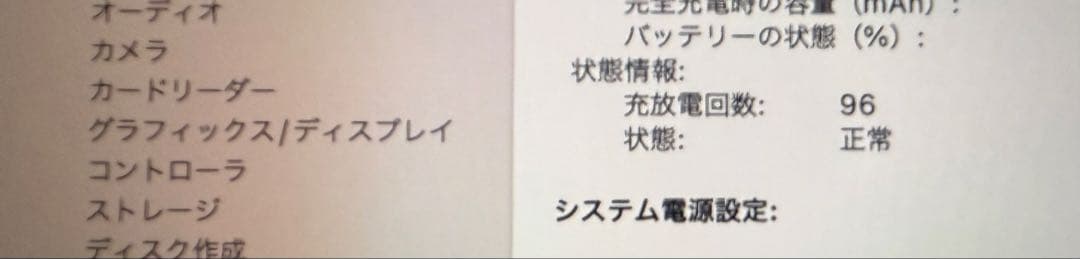 オーディオ
カメラ
カードリーダー
グラフィックス/ディスプレイ
コントローラ
ストレージ
ディスク作成
完全充電時の容量（mAh）:
バッテリーの状態（%）:
状態情報:
充放電回数: 96
状態: 正常
システム電源設定: